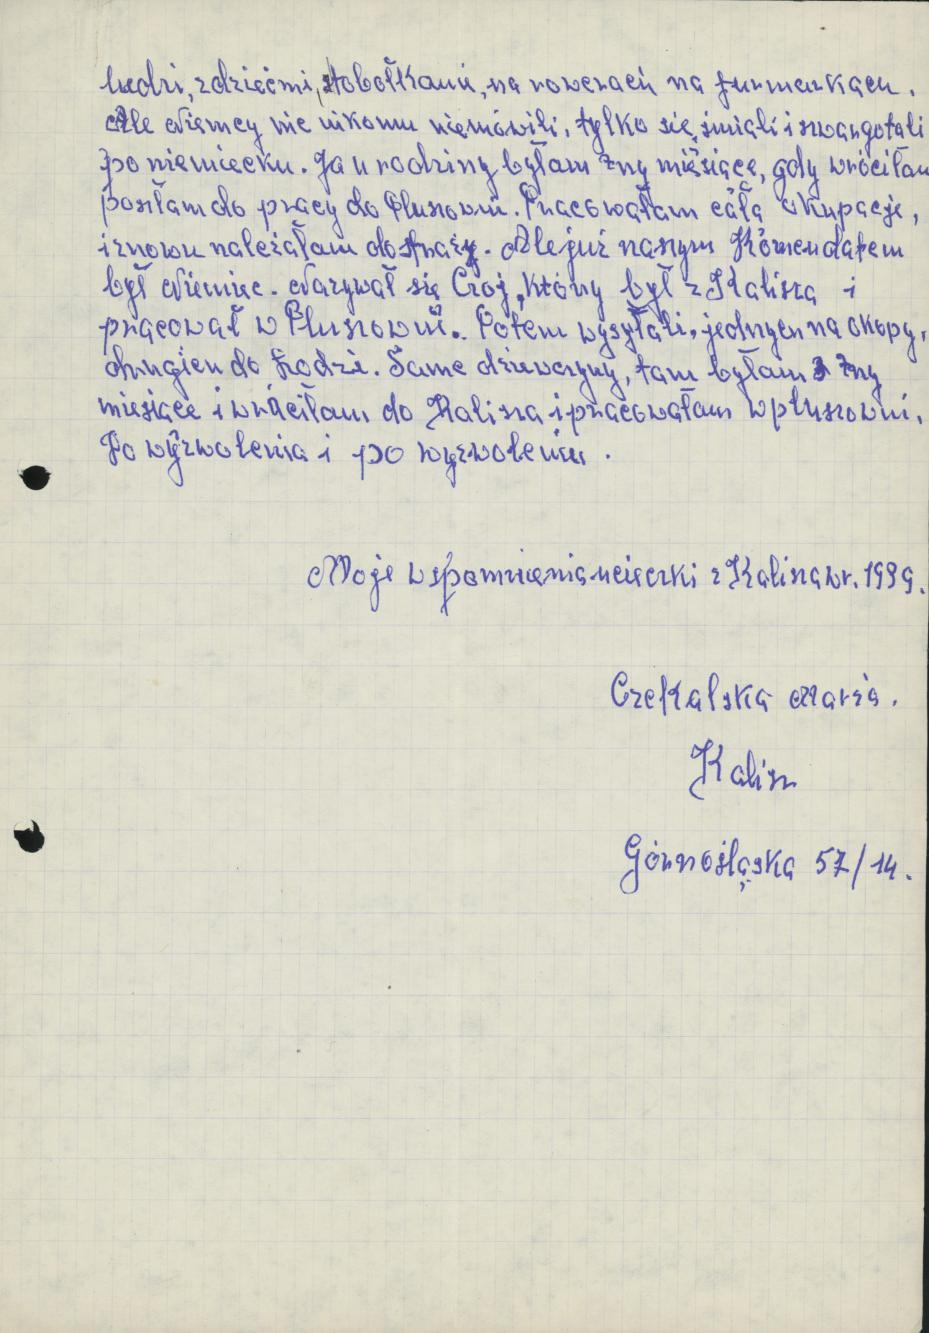 ludzi, z dziećmi, z tobołkami, na rowerach na furmankach.
Ale Niemcy nic nikomu niemówili, tylko się śmiali i szwargotali
po niemiecku. Ja u rodziny byłam trzy miesiące, gdy wróciłam
poszłam do pracy do Pluszowni. Pracowałam całą okupację,
i znowu należałam do straży. Ale już naszym Komendatem
był Niemiec. Nazywał się Croj, który był z Kalisza i
pracował w Pluszowni. Potem wysyłali, jednych na okopy,
drugich do Łodzi. Same dziewczyny, tam byłam trzy
miesiące i wróciłam do Kalisza i pracowałam w pluszowni.
Do wyzwolenia i po wyzwoleniu.
Moje wspomnienia ucieczki z Kalisza w r. 1939.
Czekalska Maria.
Kalisz
Górnośląska 57/14.